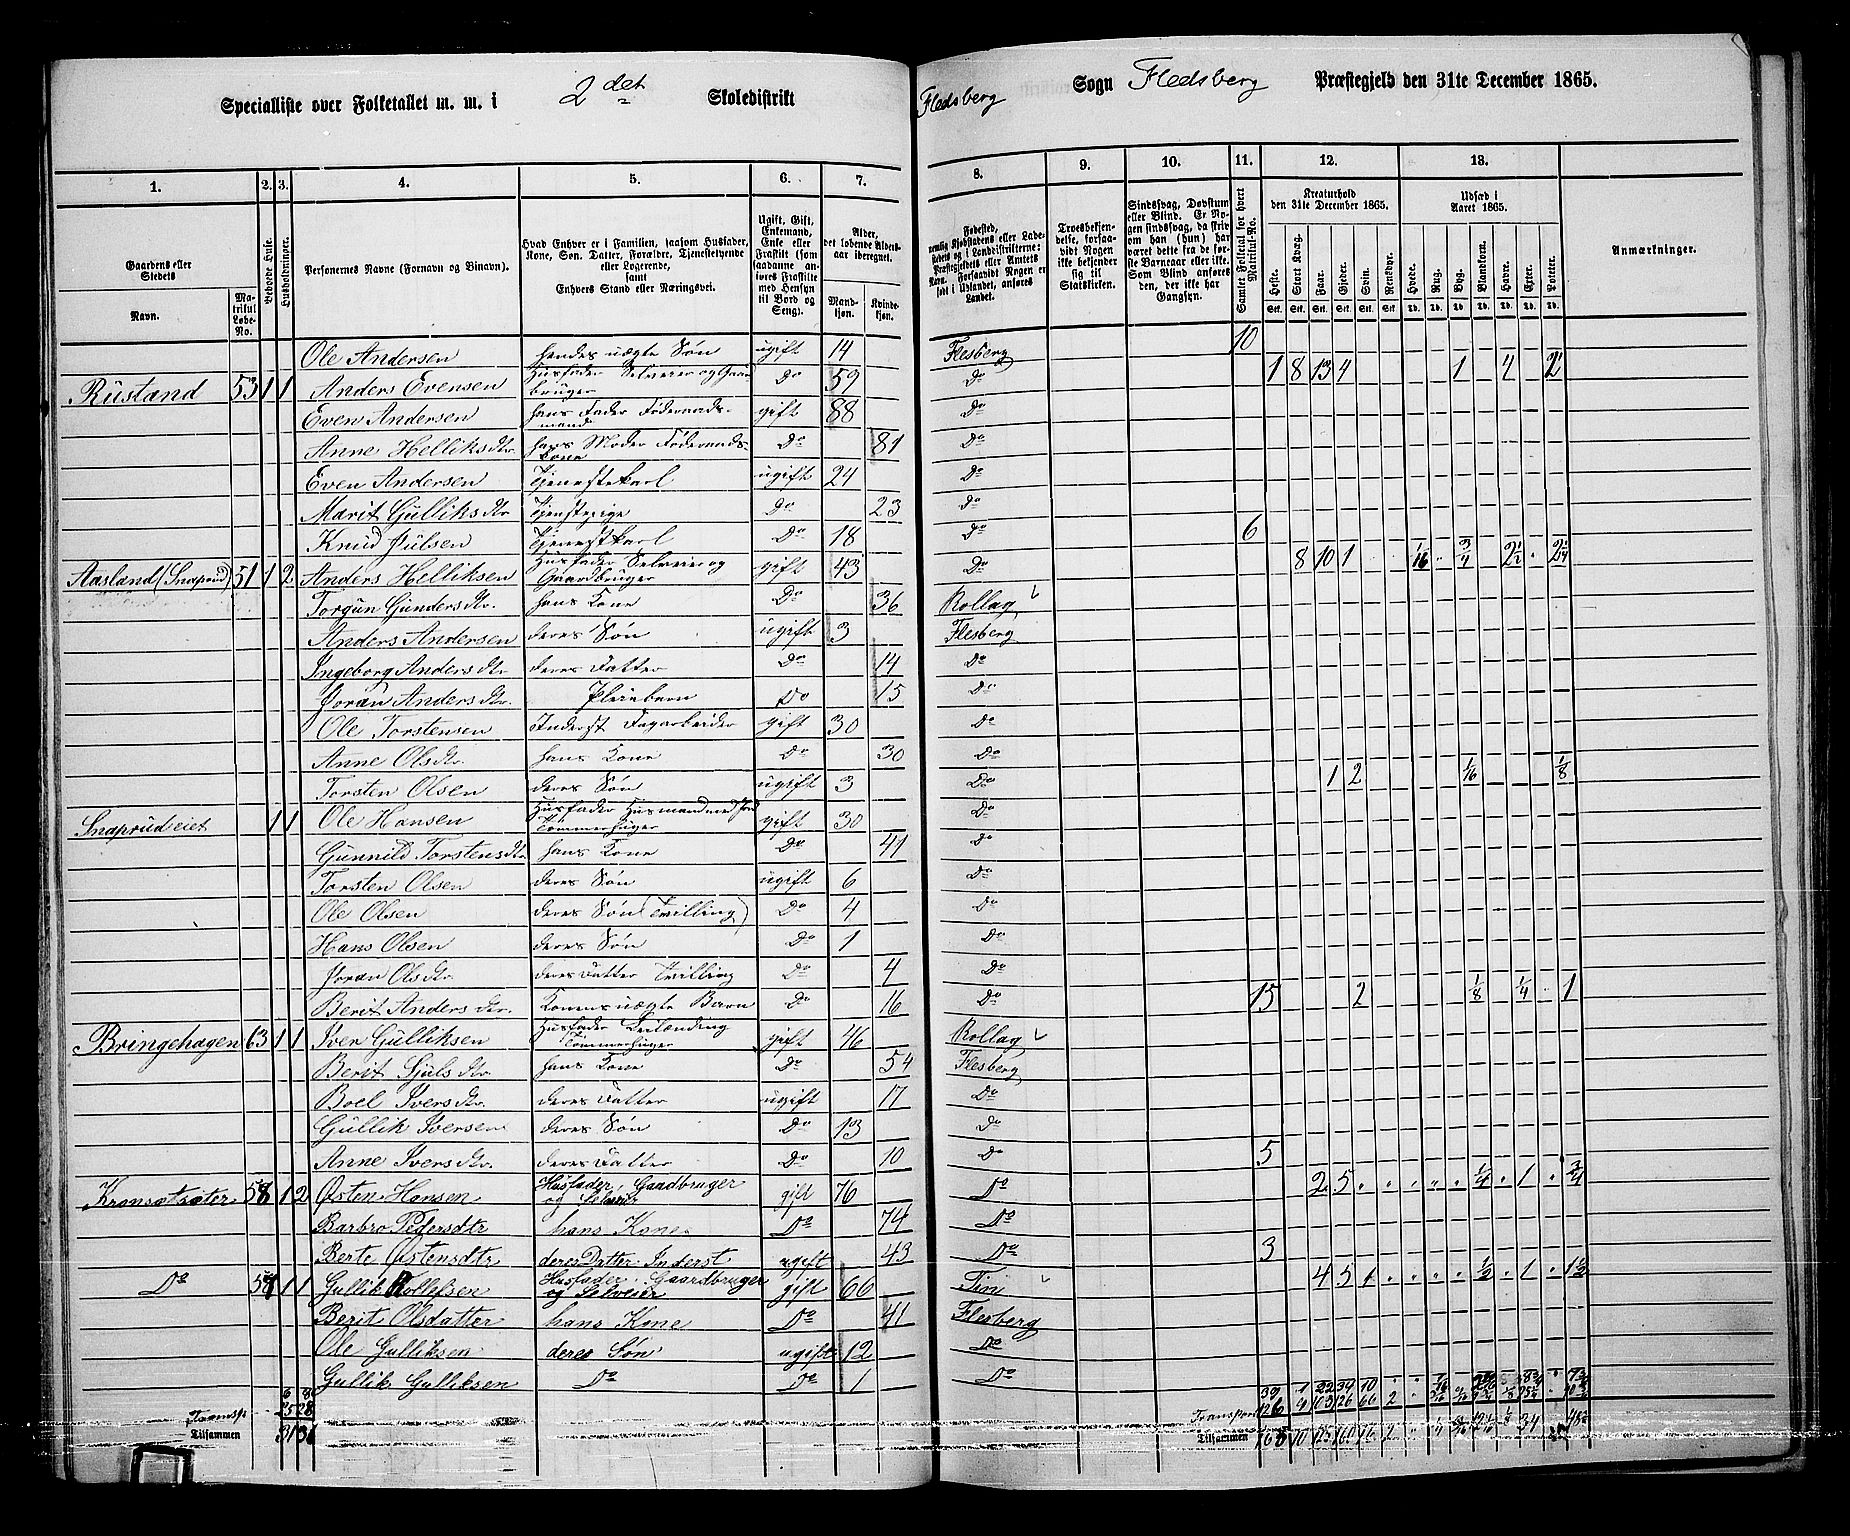 Specialliste over Folketallet m. m. i 2det Skoledistrikt Fledsberg Sogn Fledsberg Præstegjeld den 31te December 1865.
1. 2. 3. 4. 5. 6. 7. 8. 9. 10. 11. 12. 13.
Gaardens eller Stedets
Navn.
Matrikul Løbe-No.
Beboede Huse.
Husholdninger.
Personernes Navne (Fornavn og Binavn).
Hvad Enhver er i Familien, saasom Husfader, Kone, Søn, Datter, Forældre, Tjenestetyende eller Logerende, samt Enhvers Stand eller Næringsvei.
Ugift, Gift, Enkemand, Enke eller Fraskilt (som saadanne anføres Fraskilte med Hensyn til Bord og Seng).
Alder, det løbende Aldersaar iberegnet.
Mandkjøn.
Kvindekjøn.
Troesbekjendelse, forsaavidt Nogen ikke bekjender sig til Statskirken.
Sindssvag, Døvstum eller Blind. Er Nogen sindssvag, da skrives om han (hun) har været dette fra de første Barneaar eller ikke. Som Blind anføres den, der ikke har Gangsyn.
Samlet Folketal for hvert Matrikul-No.
Kreaturhold den 31te December 1865.
Heste. Stort Kvæg. Faar. Gjeder. Svin. Rensdyr.
Udsæd i Aaret 1865.
Hvede. Rug. Byg. Blandkorn. Havre. Erter. Poteter.
Anmærkninger.
Ole Andersen hendes uægte Søn ugift 14 Flesberg 10
Rustand 53 1 1 Anders Evensen Husfader Selveier og Gaardbruger Do 59 Do 1 8 13 4 1 4 2
Even Andersen hans Fader Føderaadsmand gift 88 Do
Anne Helliksdtr. hans Moder Føderaadskone Do 81 Do
Even Andersen Tjenestekarl ugift 24 Do
Marit Gulliksdtr Tjenstepige Do 23 Do
Knud Julsen Tjenestkarl Do 18 Do 6
Aasland (Snaprud) 51 1 2 Anders Helliksen Husfader Selveier og Gaardbruger gift 43 Do 8 10 1 1/16 3/4 2 1/2 2 1/4
Torgun Gundersdtr. hans Kone Do 36 Rollag
Anders Andersen deres Søn ugift 3 Flesberg
Ingeborg Andersdtr deres Datter Do 14 Do
Joran Andersdtr. Pleiebarn Do 15 Do
Ole Torstensen Inderst Fagarbeider gift 30 Do
Anne Olsdtr. hans Kone Do 30 Do
Torsten Olsen deres Søn ugift 3 Do 1 2 1/16 1/8
Snaprudeiet 1 1 Ole Hansen Husfader Husmand med Jord Tømmerhuger gift 30 Do
Gunnild Torstensdtr hans Kone Do 41 Do
Torsten Olsen deres Søn ugift 6 Do
Ole Olsen deres Søn (Tvilling) Do 4 Do
Hans Olsen deres Søn Do 1 Do
Joran Olsdtr. deres Datter Tvilling Do 4 Do
Berit Andersdtr. Konens uægte Barn Do 16 Do 15 2 1/8 1/4 1
Bringehagen 63 1 1 Iver Gulliksen Husfader Leilænding Tømmerhuger gift 46 Rollag
Berit Gjulsdtr hans Kone Do 54 Flesberg
Boel Iversdtr. deres Datter ugift 17 Do
Gullik Iversen deres Søn Do 13 Do
Anne Iversdtr. deres Datter Do 10 Do 5
58 1 2 Østen Hansen Husfader, Gaardbruger og Selveier gift 76 Do 2 5 1/4 1 3/4
Barbro Pedersdtr hans Kone Do 74 Do
Berte Østensdtr deres Datter Inderst ugift 43 Do 3
Do 1 1 Gullik Rollefsen Husfader, Gaardbruger og Selveier gift 66 Tin 4 5 1 1/2 1 1 1/2
Berit Olsdatter hans Kone Do 41 Flesberg
Ole Gulliksen deres Søn ugift 12 Do
Gullik Gulliksen Do Do 1 Do
Transp. 25 28 Transport
Tilsammen 31 36 Tilsammen